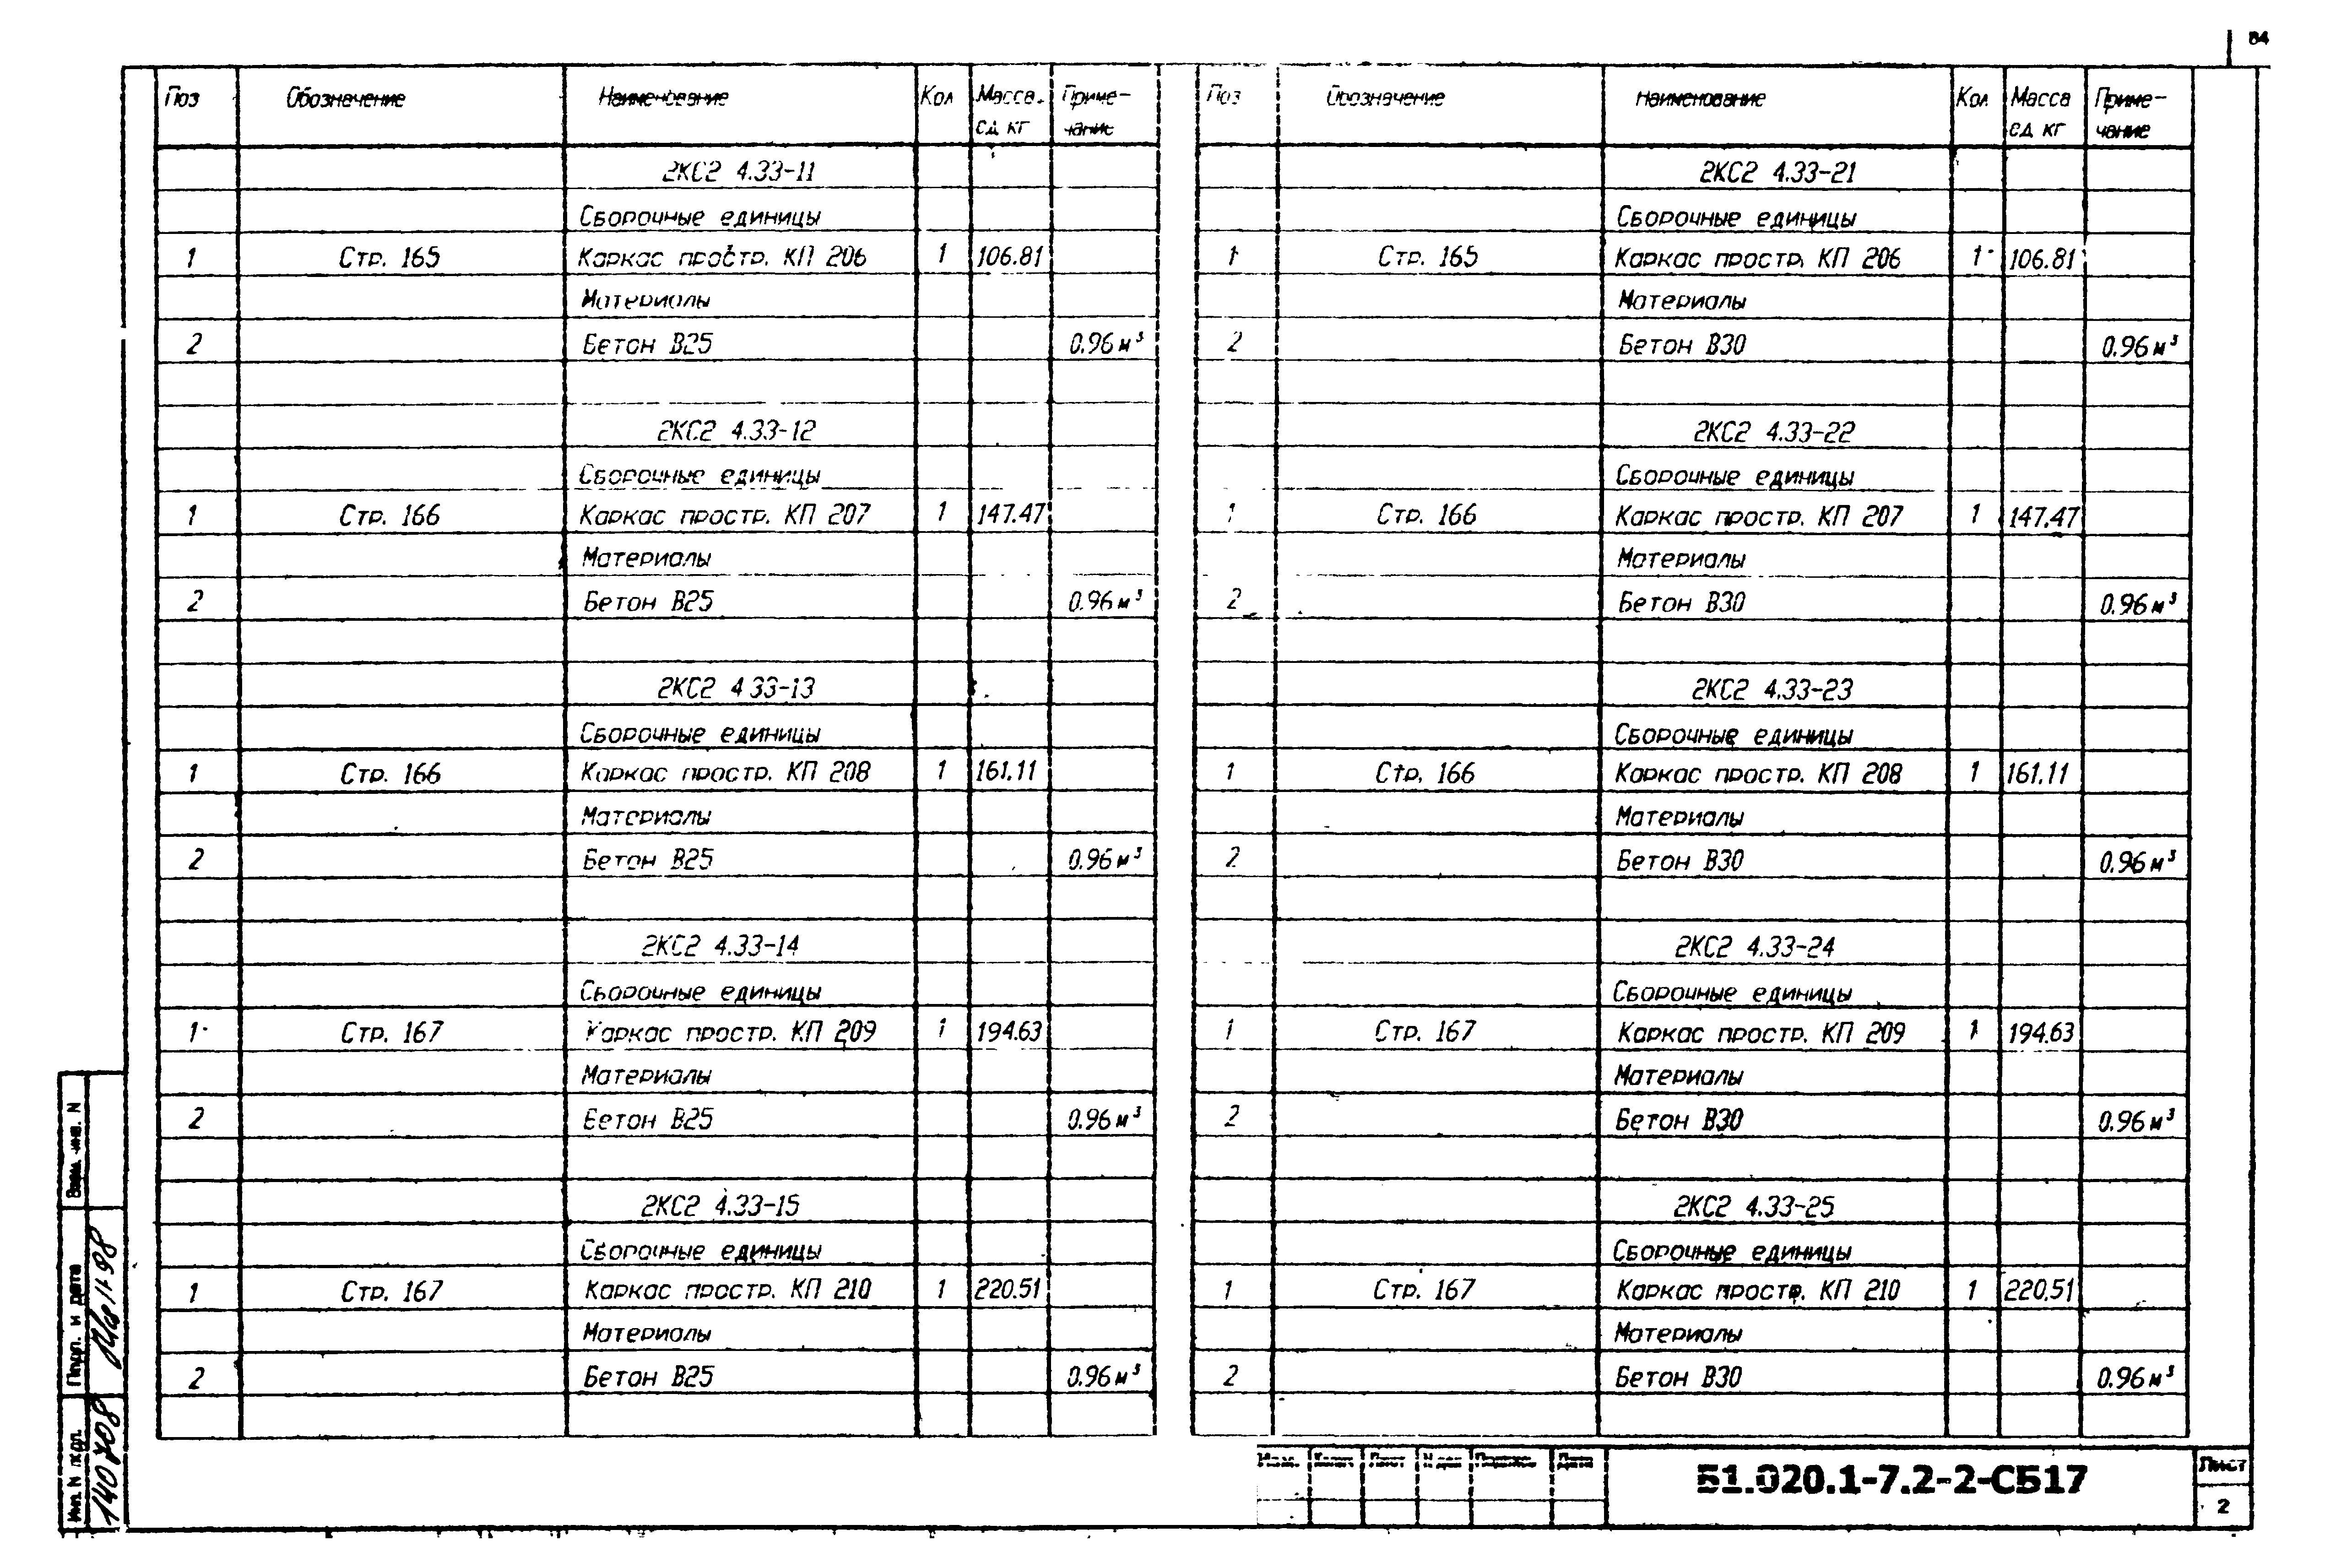 84
Поз Обозначение Наименование Кол Масса ед кг Приме-чание
2КС2 4.33-11
Сборочные единицы
1 Стр. 165 Каркас простр. КП 206 1 106.81
Материалы
2 Бетон В25 0.96 м³
2КС2 4.33-12
Сборочные единицы
1 Стр. 166 Каркас простр. КП 207 1 147.47
Материалы
2 Бетон В25 0.96 м³
2КС2 4 33-13
Сборочные единицы
1 Стр. 166 Каркас простр. КП 208 1 161.11
Материалы
2 Бетон В25 0.96 м³
2КС2 4.33-14
Сборочные единицы
1 Стр. 167 Каркас простр. КП 209 1 194.63
Материалы
2 Бетон В25 0.96 м³
2КС2 4.33-15
Сборочные единицы
1 Стр. 167 Каркас простр. КП 210 1 220.51
Материалы
2 Бетон В25 0.96 м³
Поз Обозначение Наименование Кол Масса ед кг Приме-чание
2КС2 4.33-21
Сборочные единицы
1 Стр. 165 Каркас простр. КП 206 1 106.81
Материалы
2 Бетон В30 0.96 м³
2КС2 4.33-22
Сборочные единицы
1 Стр. 166 Каркас простр. КП 207 1 147.47
Материалы
2 Бетон В30 0.96 м³
2КС2 4.33-23
Сборочные единицы
1 Стр. 166 Каркас простр. КП 208 1 161.11
Материалы
2 Бетон В30 0.96 м³
2КС2 4.33-24
Сборочные единицы
1 Стр. 167 Каркас простр. КП 209 1 194.63
Материалы
2 Бетон В30 0.96 м³
2КС2 4.33-25
Сборочные единицы
1 Стр. 167 Каркас простр. КП 210 1 220.51
Материалы
2 Бетон В30 0.96 м³
Взам. инв. N
Подп. и дата
Инв. N подл.
140708
Б1.020.1-7.2-2-СБ17
Лист
2